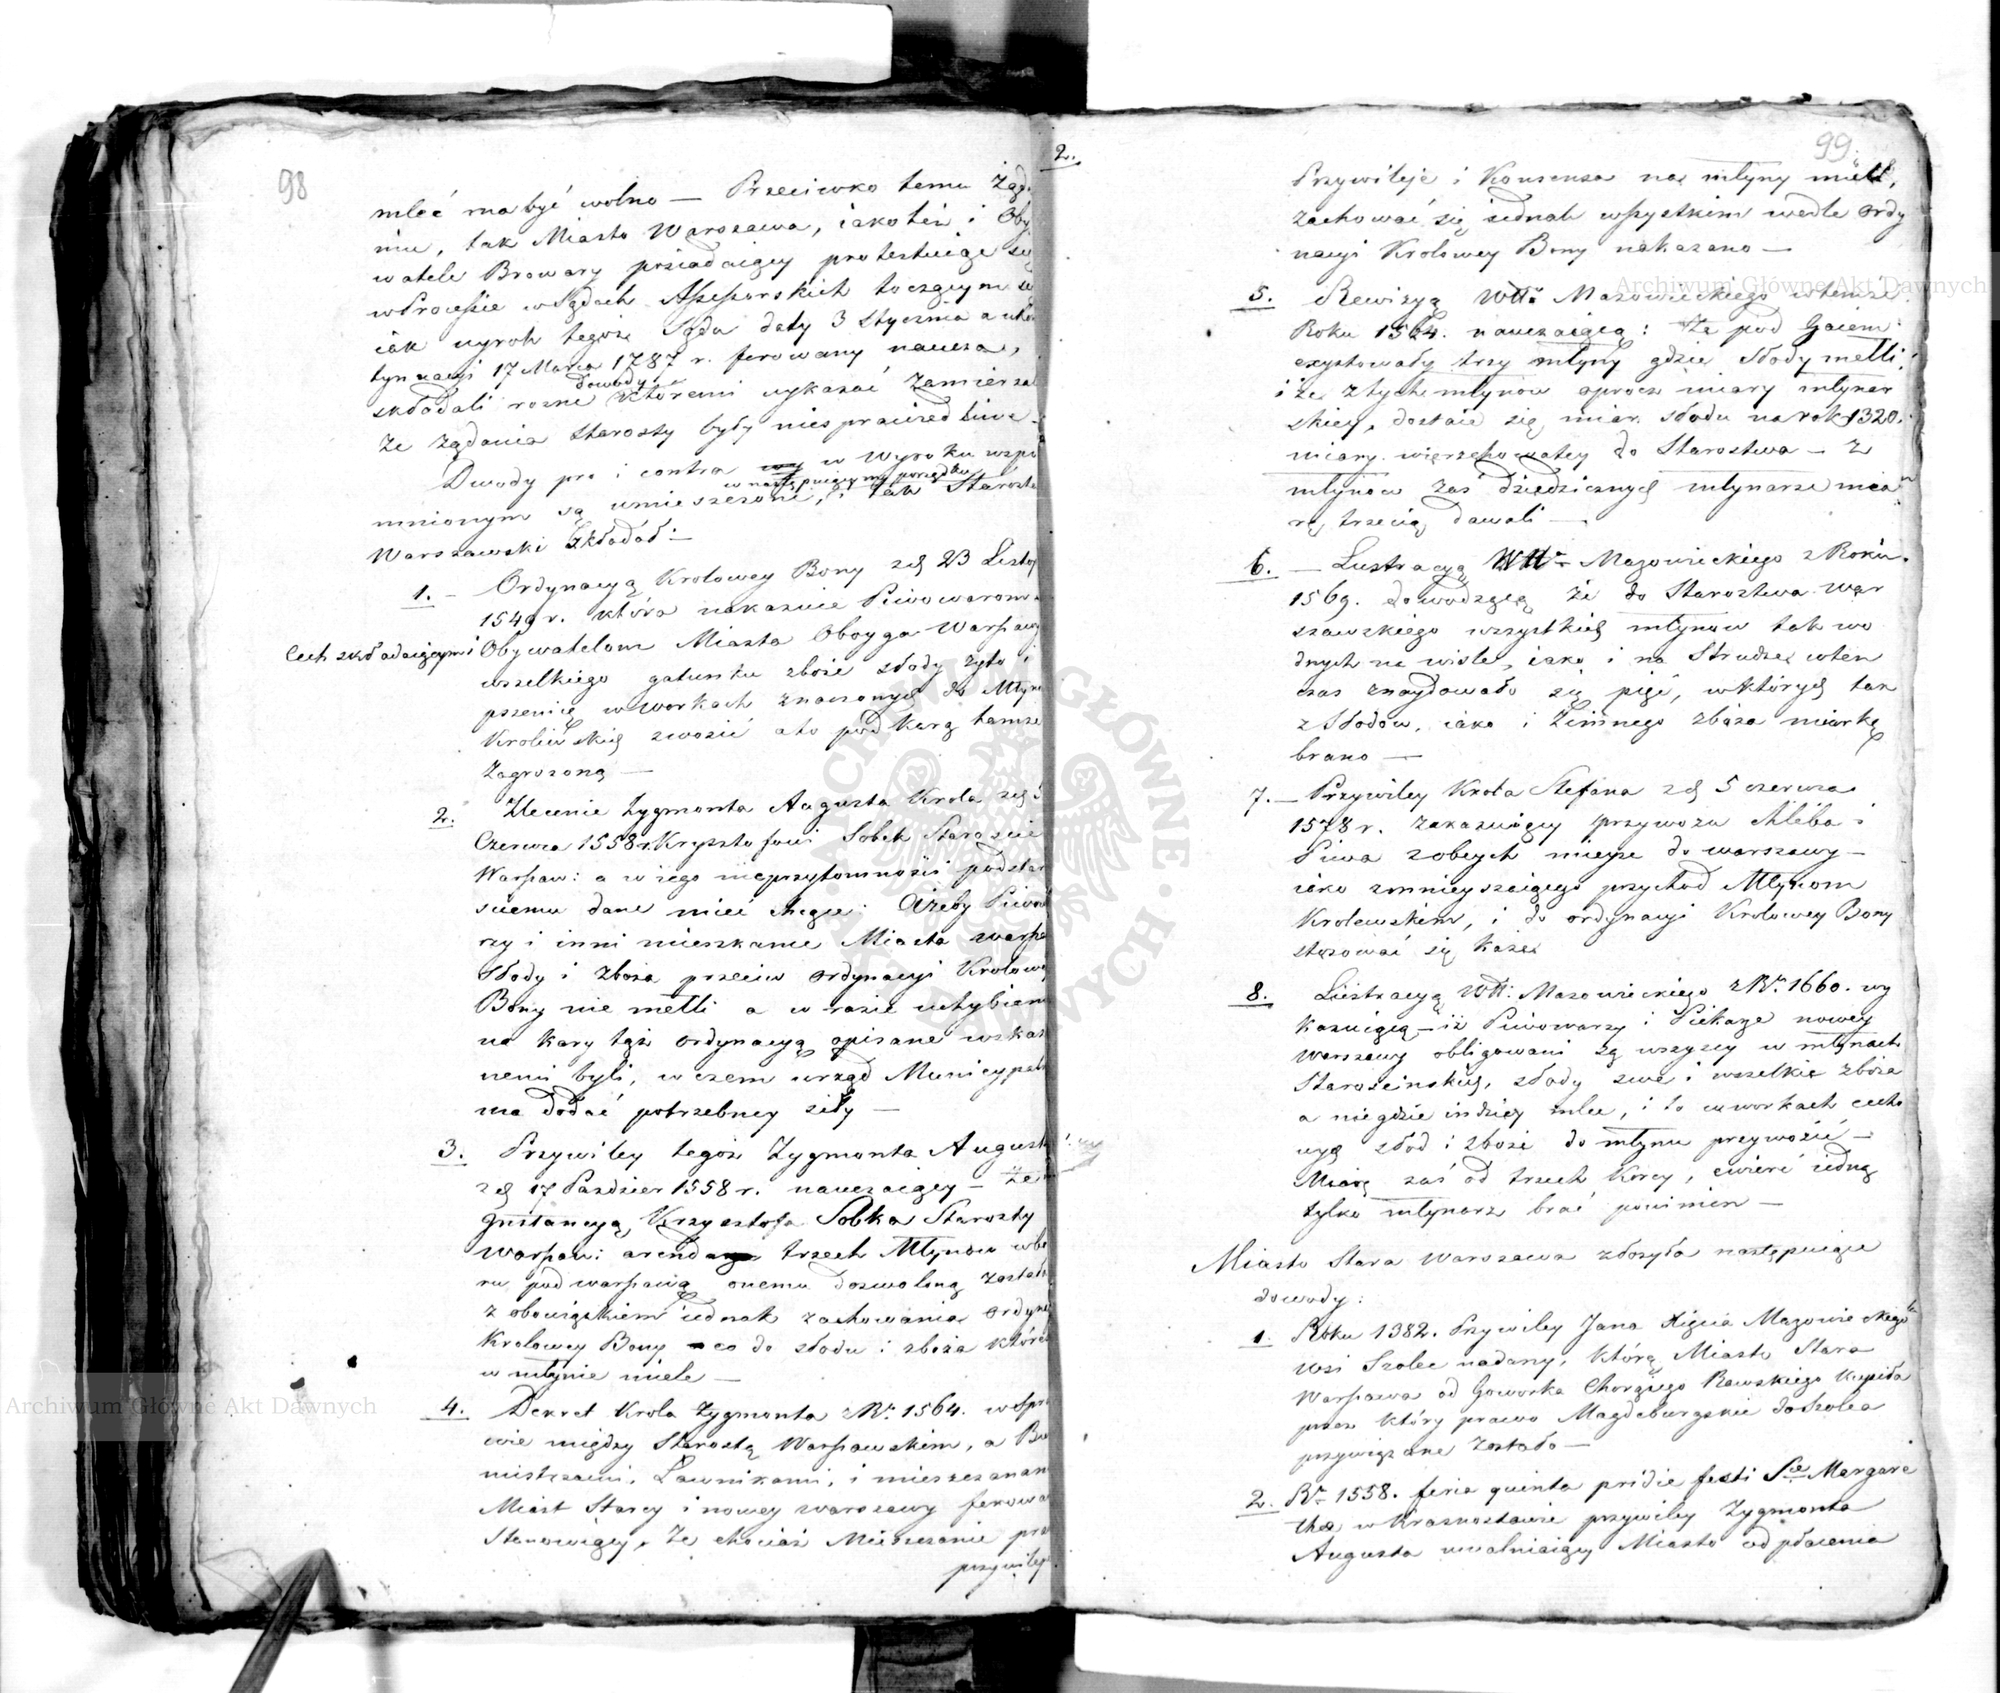 98
mleć ma być wolno — Przeciwko temu żąda
niu, tak Miasto Warszawa, iako też i Oby
watele Browary posiadaiący protestuiąc się
w Processie w Sądach Assessorskich toczącym się
iak wyrok tegoż Sądu daty 3 Stycznia a
17 Marca 1787 r. ferowany naucza,
składali rozne dowody, ktoremi wykazać zamierzali
że żądania Starosty były niesprawiedliwe —
Dwody pro i contra w wyroku wspo
mnionym są w następuiącym porządku umieszczone, i tak Starosta
Warszawski składał: —
1. — Ordynacyą Krolowey Bony z d. 23 Listop
1549 r. która nakazuie Piwowarom
Cech składaiącym i Obywatelom Miasta Oboyga Warszawy
wszelkiego gatunku zboże słody żyto i
pszenicę w workach znaczonych do Młyna
Krolewskich zwozić a to pod karą tamże
zagrożoną —
2. Zlecenie Zygmonta Augusta Krola z d.
Czerwca 1558 r. Krysztofowi Sobek Staroście
Warszaw: a w iego nieprzytomności podstar
sciemu dane mieć chcące: Ażeby Piwowa
rzy i inni mieszkance Miasta Warsza
Słody i zboża przeciw ordynacyi Krolowey
Bony nie mełli a w razie uchybienia
na kary tąż ordynacyą opisane wskaza
nemi byli, w czem urząd Municypalny
ma dodać potrzebney siły —
3. Przywiley tegoż Zygmonta Augusta
z d. 17 Paździer 1558 r. nauczaiący — że
Instancyą Krzysztofa Sobka Starosty
Warszaw: arenda trzech Młynow w be
ru pod Warszawą onemu dozwoloną została
z obowiązkiem iednak zachowania ordyna
Krolowey Bony — co do słodu i zboża które
w młynie miele —
4. Dekret Krola Zygmonta z R. 1564. w Spra
wie między Starostą Warszawskim, a Bur
mistrzami, Ławnikami, i mieszczanami
Miast Starey i nowey Warszawy ferowany
Stanowiący, że chociaż Mieszczanie przez
przywileje
2.
99.
Przywileje i Konsensa na młyny mieli,
zachować się iednak wszystkim wedle Ordy
nacyi Krolowey Bony nakazano —
5. Rewizyą Wtt. Mazowieckiego w temże
Roku 1564. nauczaiącą: że pod Gaiem
exystowały trzy młyny gdzie Słody mełli,
i że z tych młynow oprocz miary młynar
skiey, dostaie się miar. słodu na rok 1320.
miary wierzchowatey do Starostwa — z
młynow zaś dziedzicznych młynarze mia
rę trzecią dawali —
6. — Lustracyą Wtt. Mazowieckiego z Roku
1569. dowodzącą że do Starostwa War
szawskiego wszystkich młynow tak wo
dnych na wisle, iako i na Strudze w ten
czas znaydowało się pięć, w których tak
z Słodow, iako i Zimnego zboża miarkę
brano —
7. — Przywiley Krola Stefana z d. 5 czerwca
1578 r. zakazuiący przywozu Chleba i
Piwa z obcych mieysc do Warszawy —
iako zmnieyszaiącego przychod Młynom
Krolewskim, i do ordynacyi Krolowey Bony
stosować się każe
8. Lustracyą Wtt: Mazowieckiego z R. 1660. wy
kazuiącą — iż Piwowarzy i Piekarze nowey
Warszawy obligowani są wszyscy w młynach
Starościnskich, słody swe i wszelkie zboża
a nie gdzie indziey mleć, i to w workach cecho
wych słód i zboże do młynu przywozić —
Miarę zaś od trzech Korcy, cwierć iedną
tylko młynarz brać powinien —
Miasto Stara Warszawa złożyła następuiące
dowody:
1. Roku 1382. Przywiley Jana Xięcia Mazowieckiego
Wsi Szolec nadany, którą Miasto Stara
Warszawa od Goworka Chorążego Rawskiego kupiła
przez który prawo Magdeburgskie do Szolca
przywiązane zostało —
2. R. 1558. feria quinta pridie festi Ste Margare
thae w Krasnostawie przywiley Zygmonta
Augusta uwalniaiący Miasto od płacenia
Archiwum Główne Akt Dawnych
Archiwum Główne Akt Dawnych
ARCHIWUM GŁÓWNE AKT DAWNYCH